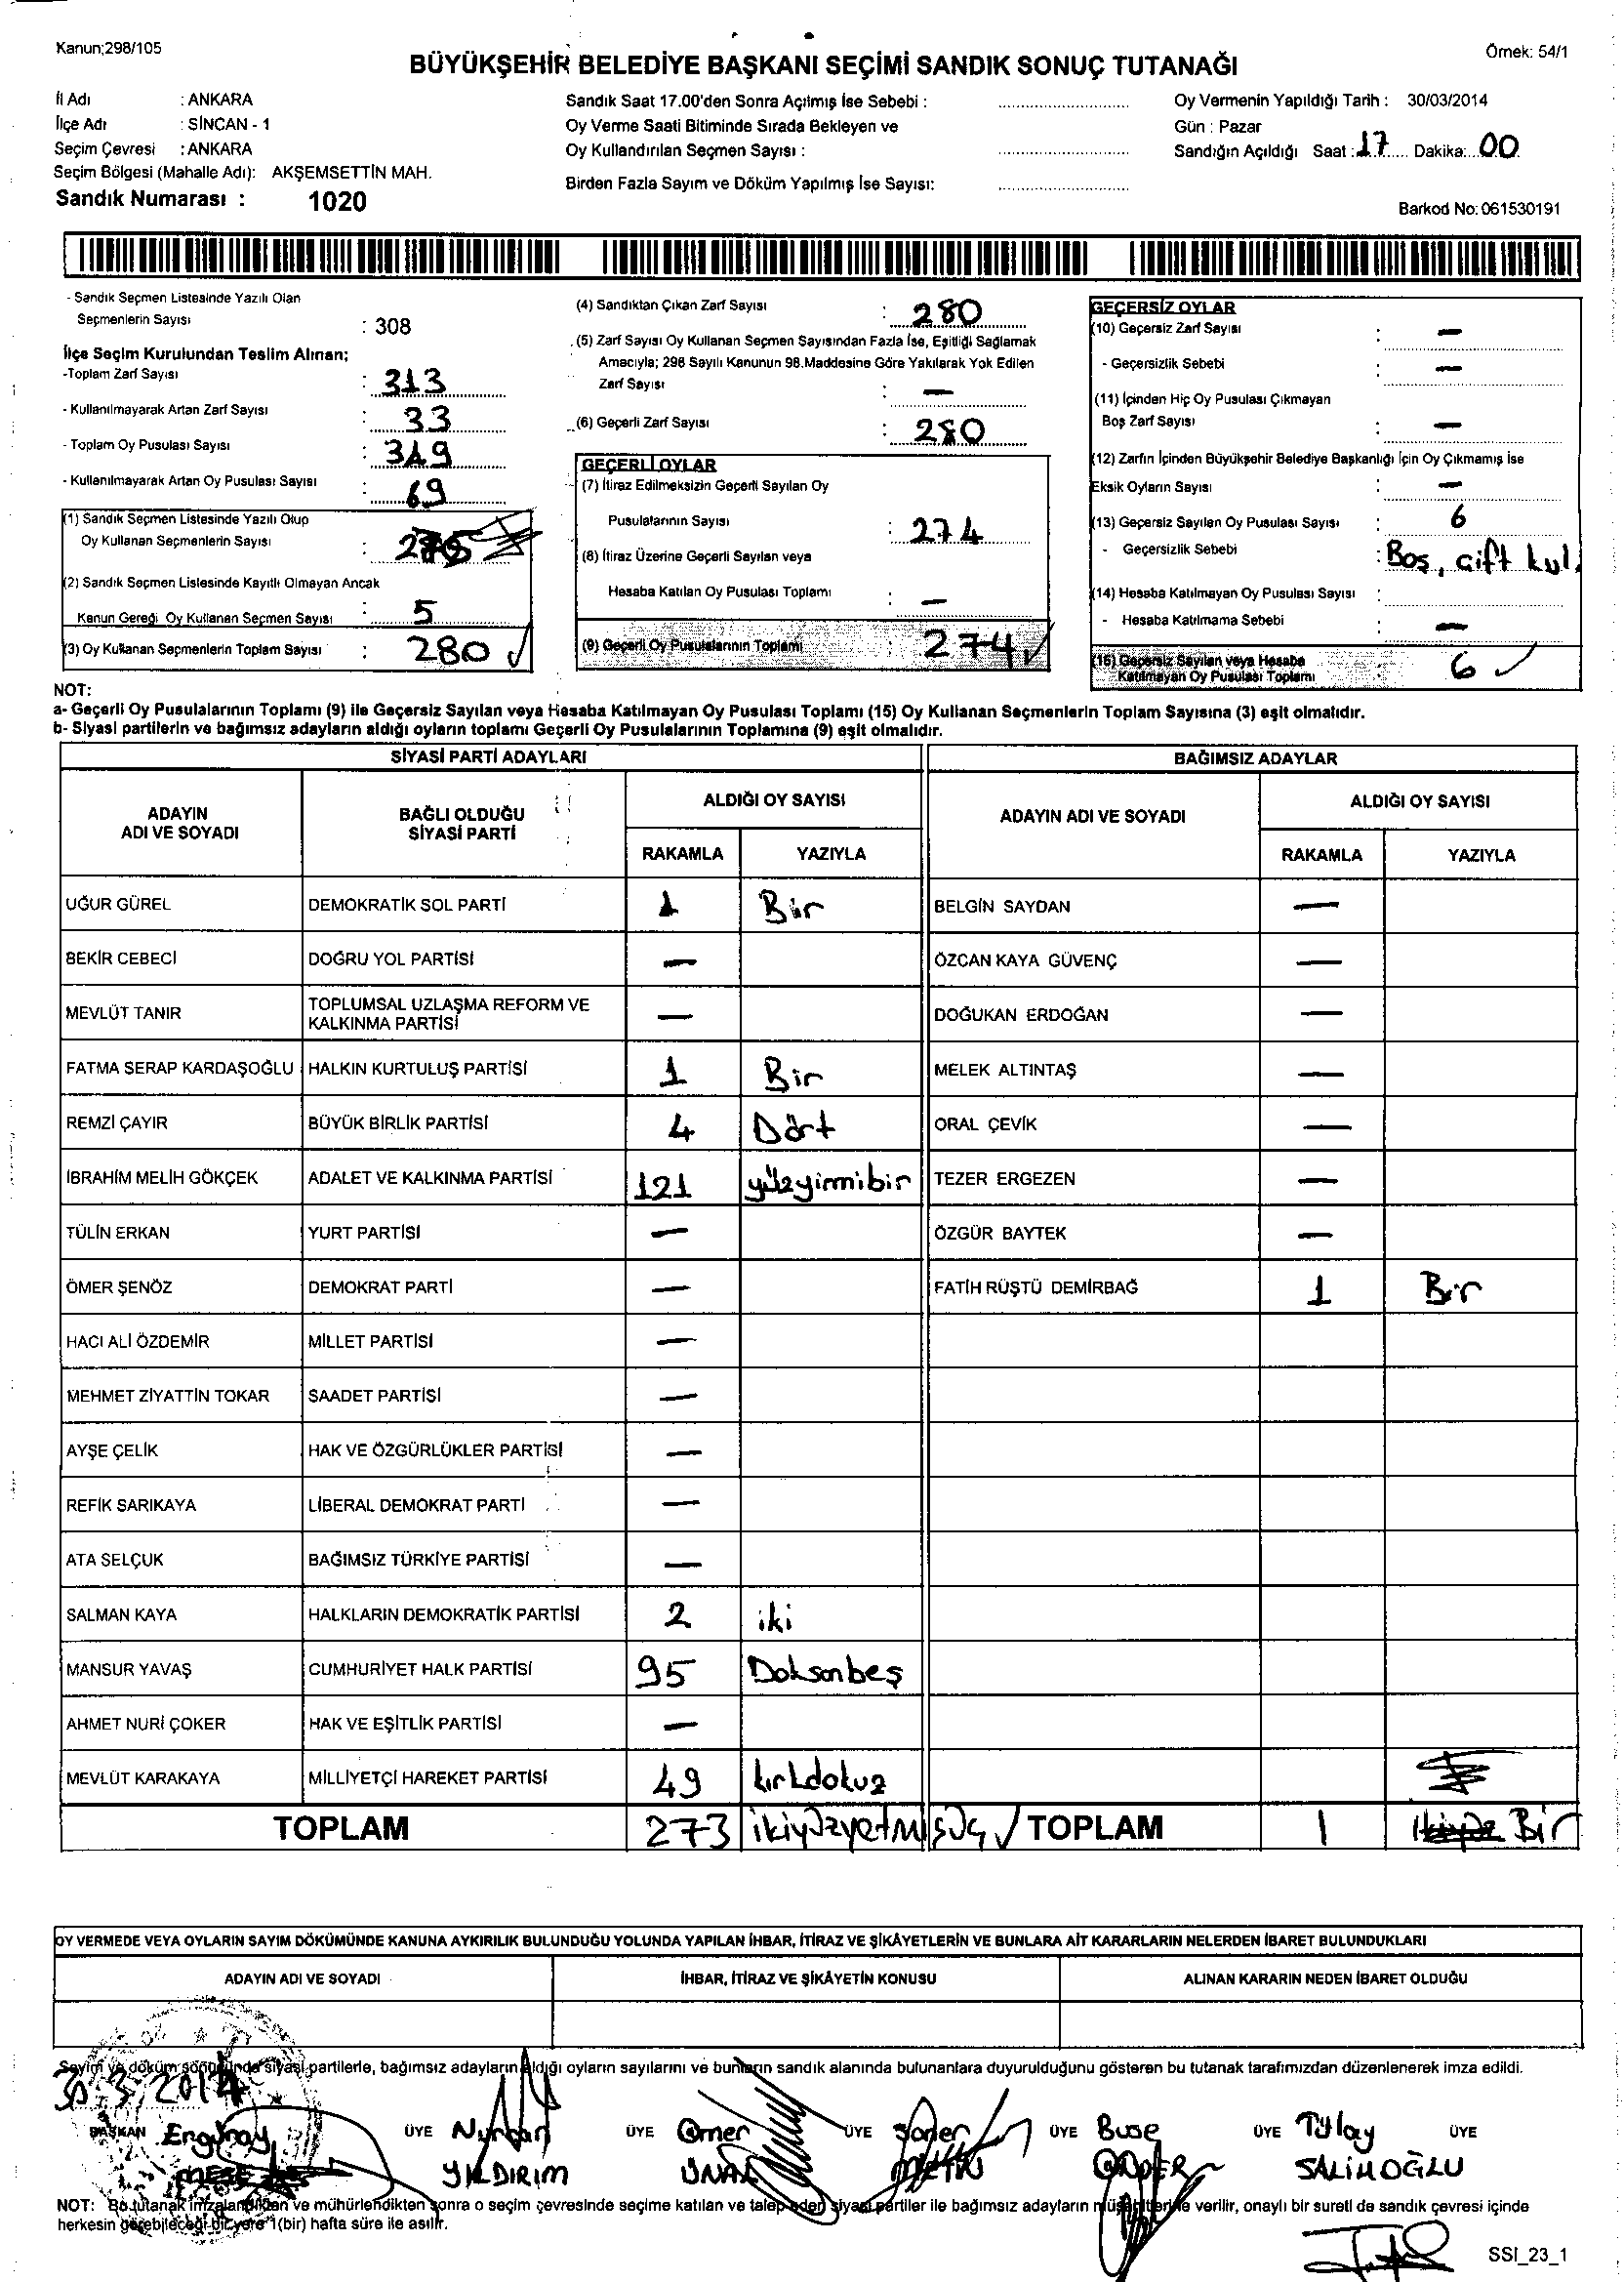 Kanun;298/105
Örnek: 54/1
BÜYÜKŞEHİR BELEDİYE BAŞKANI SEÇİMİ SANDIK SONUÇ TUTANAĞI
İl Adı : ANKARA
İlçe Adı : SİNCAN - 1
Seçim Çevresi : ANKARA
Seçim Bölgesi (Mahalle Adı): AKŞEMSETTİN MAH.
Sandık Numarası : 1020
Sandık Saat 17.00'den Sonra Açılmış İse Sebebi :
Oy Verme Saati Bitiminde Sırada Bekleyen ve
Oy Kullandırılan Seçmen Sayısı :
Birden Fazla Sayım ve Döküm Yapılmış İse Sayısı:
Oy Vermenin Yapıldığı Tarih : 30/03/2014
Gün : Pazar
Sandığın Açıldığı Saat : 17 Dakika: 00
Barkod No: 061530191
- Sandık Seçmen Listesinde Yazılı Olan
Seçmenlerin Sayısı : 308
İlçe Seçim Kurulundan Teslim Alınan;
-Toplam Zarf Sayısı : 313
- Kullanılmayarak Artan Zarf Sayısı : 33
- Toplam Oy Pusulası Sayısı : 349
- Kullanılmayarak Artan Oy Pusulası Sayısı : 69
(1) Sandık Seçmen Listesinde Yazılı Olup
Oy Kullanan Seçmenlerin Sayısı :
(2) Sandık Seçmen Listesinde Kayıtlı Olmayan Ancak
Kanun Gereği Oy Kullanan Seçmen Sayısı : 5
(3) Oy Kullanan Seçmenlerin Toplam Sayısı : 280 √
(4) Sandıktan Çıkan Zarf Sayısı : 280
(5) Zarf Sayısı Oy Kullanan Seçmen Sayısından Fazla İse, Eşitliği Sağlamak
Amacıyla; 298 Sayılı Kanunun 98.Maddesine Göre Yakılarak Yok Edilen
Zarf Sayısı : —
(6) Geçerli Zarf Sayısı : 280
GEÇERLİ OYLAR
(7) İtiraz Edilmeksizin Geçerli Sayılan Oy
Pusulalarının Sayısı : 274
(8) İtiraz Üzerine Geçerli Sayılan veya
Hesaba Katılan Oy Pusulası Toplamı : —
(9) Geçerli Oy Pusulalarının Toplamı : 274 √
GEÇERSİZ OYLAR
(10) Geçersiz Zarf Sayısı : —
- Geçersizlik Sebebi : —
(11) İçinden Hiç Oy Pusulası Çıkmayan
Boş Zarf Sayısı : —
(12) Zarfın İçinden Büyükşehir Belediye Başkanlığı İçin Oy Çıkmamış İse
Eksik Oyların Sayısı : —
(13) Geçersiz Sayılan Oy Pusulası Sayısı : 6
- Geçersizlik Sebebi : Boş, çift kul.
(14) Hesaba Katılmayan Oy Pusulası Sayısı :
- Hesaba Katılmama Sebebi : —
(15) Geçersiz Sayılan veya Hesaba
Katılmayan Oy Pusulası Toplamı 6 √
NOT:
a- Geçerli Oy Pusulalarının Toplamı (9) ile Geçersiz Sayılan veya Hesaba Katılmayan Oy Pusulası Toplamı (15) Oy Kullanan Seçmenlerin Toplam Sayısına (3) eşit olmalıdır.
b- Siyasi partilerin ve bağımsız adayların aldığı oyların toplamı Geçerli Oy Pusulalarının Toplamına (9) eşit olmalıdır.
SİYASİ PARTİ ADAYLARI
ADAYIN
ADI VE SOYADI
BAĞLI OLDUĞU
SİYASİ PARTİ
ALDIĞI OY SAYISI
RAKAMLA YAZIYLA
UĞUR GÜREL DEMOKRATİK SOL PARTİ 1 Bir
BEKİR CEBECİ DOĞRU YOL PARTİSİ —
MEVLÜT TANIR TOPLUMSAL UZLAŞMA REFORM VE
KALKINMA PARTİSİ —
FATMA SERAP KARDAŞOĞLU HALKIN KURTULUŞ PARTİSİ 1 Bir
REMZİ ÇAYIR BÜYÜK BİRLİK PARTİSİ 4 Dört
İBRAHİM MELİH GÖKÇEK ADALET VE KALKINMA PARTİSİ 121 yüzyirmibir
TÜLİN ERKAN YURT PARTİSİ —
ÖMER ŞENÖZ DEMOKRAT PARTİ —
HACI ALİ ÖZDEMİR MİLLET PARTİSİ —
MEHMET ZİYATTİN TOKAR SAADET PARTİSİ —
AYŞE ÇELİK HAK VE ÖZGÜRLÜKLER PARTİSİ —
REFİK SARIKAYA LİBERAL DEMOKRAT PARTİ —
ATA SELÇUK BAĞIMSIZ TÜRKİYE PARTİSİ —
SALMAN KAYA HALKLARIN DEMOKRATİK PARTİSİ 2 iki
MANSUR YAVAŞ CUMHURİYET HALK PARTİSİ 95 Doksanbeş
AHMET NURİ ÇOKER HAK VE EŞİTLİK PARTİSİ —
MEVLÜT KARAKAYA MİLLİYETÇİ HAREKET PARTİSİ 49 kırkdokuz
TOPLAM 273 ikiyüzyetmişüç √
BAĞIMSIZ ADAYLAR
ADAYIN ADI VE SOYADI
ALDIĞI OY SAYISI
RAKAMLA YAZIYLA
BELGİN SAYDAN —
ÖZCAN KAYA GÜVENÇ —
DOĞUKAN ERDOĞAN —
MELEK ALTINTAŞ —
ORAL ÇEVİK —
TEZER ERGEZEN —
ÖZGÜR BAYTEK —
FATİH RÜŞTÜ DEMİRBAĞ 1 Bir
TOPLAM 1 Bir
OY VERMEDE VEYA OYLARIN SAYIM DÖKÜMÜNDE KANUNA AYKIRILIK BULUNDUĞU YOLUNDA YAPILAN İHBAR, İTİRAZ VE ŞİKÂYETLERİN VE BUNLARA AİT KARARLARIN NELERDEN İBARET BULUNDUKLARI
ADAYIN ADI VE SOYADI
İHBAR, İTİRAZ VE ŞİKÂYETİN KONUSU
ALINAN KARARIN NEDEN İBARET OLDUĞU
Sayım ve döküm sonucunda siyasi partilerle, bağımsız adayların aldığı oyların sayılarını ve bunların sandık alanında bulunanlara duyurulduğunu gösteren bu tutanak tarafımızdan düzenlenerek imza edildi.
30.3.2014
BAŞKAN Ergünay
MEŞE
ÜYE Nurcan
YILDIRIM
ÜYE Ömer
ÜNAL
ÜYE Soner
METİN
ÜYE Buse
ÜYE Tülay
SALİHOĞLU
ÜYE
NOT: Bu tutanak imzalandıktan ve mühürlendikten sonra o seçim çevresinde seçime katılan ve talep eden siyasi partiler ile bağımsız adayların müşahitlerine verilir, onaylı bir sureti de sandık çevresi içinde
herkesin görebileceği bir yere 1(bir) hafta süre ile asılır.
SSI_23_1